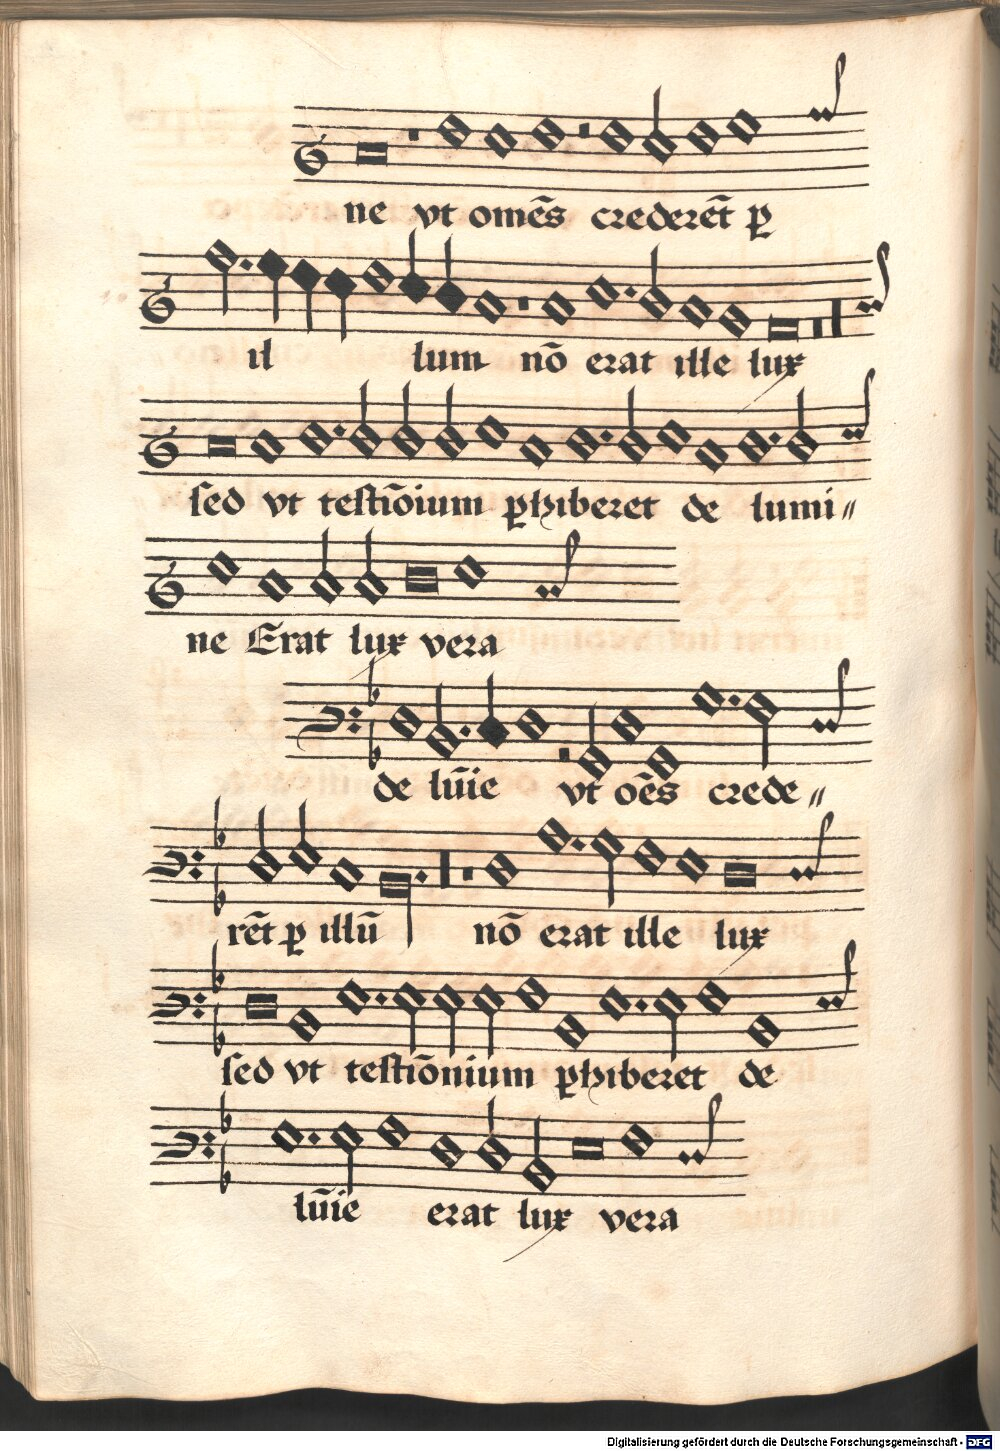 ne vt omēs crederēt ꝑ
il lum nō erat ille lux
sed vt testiōium ꝑhiberet de lumi〃
ne Erat lux vera
de lūie vt oēs crede〃
rēt ꝑ illū nō erat ille lux
sed vt testiōnium ꝑhiberet de
lūie erat lux vera
Digitalisierung gefördert durch die Deutsche Forschungsgemeinschaft - DFG